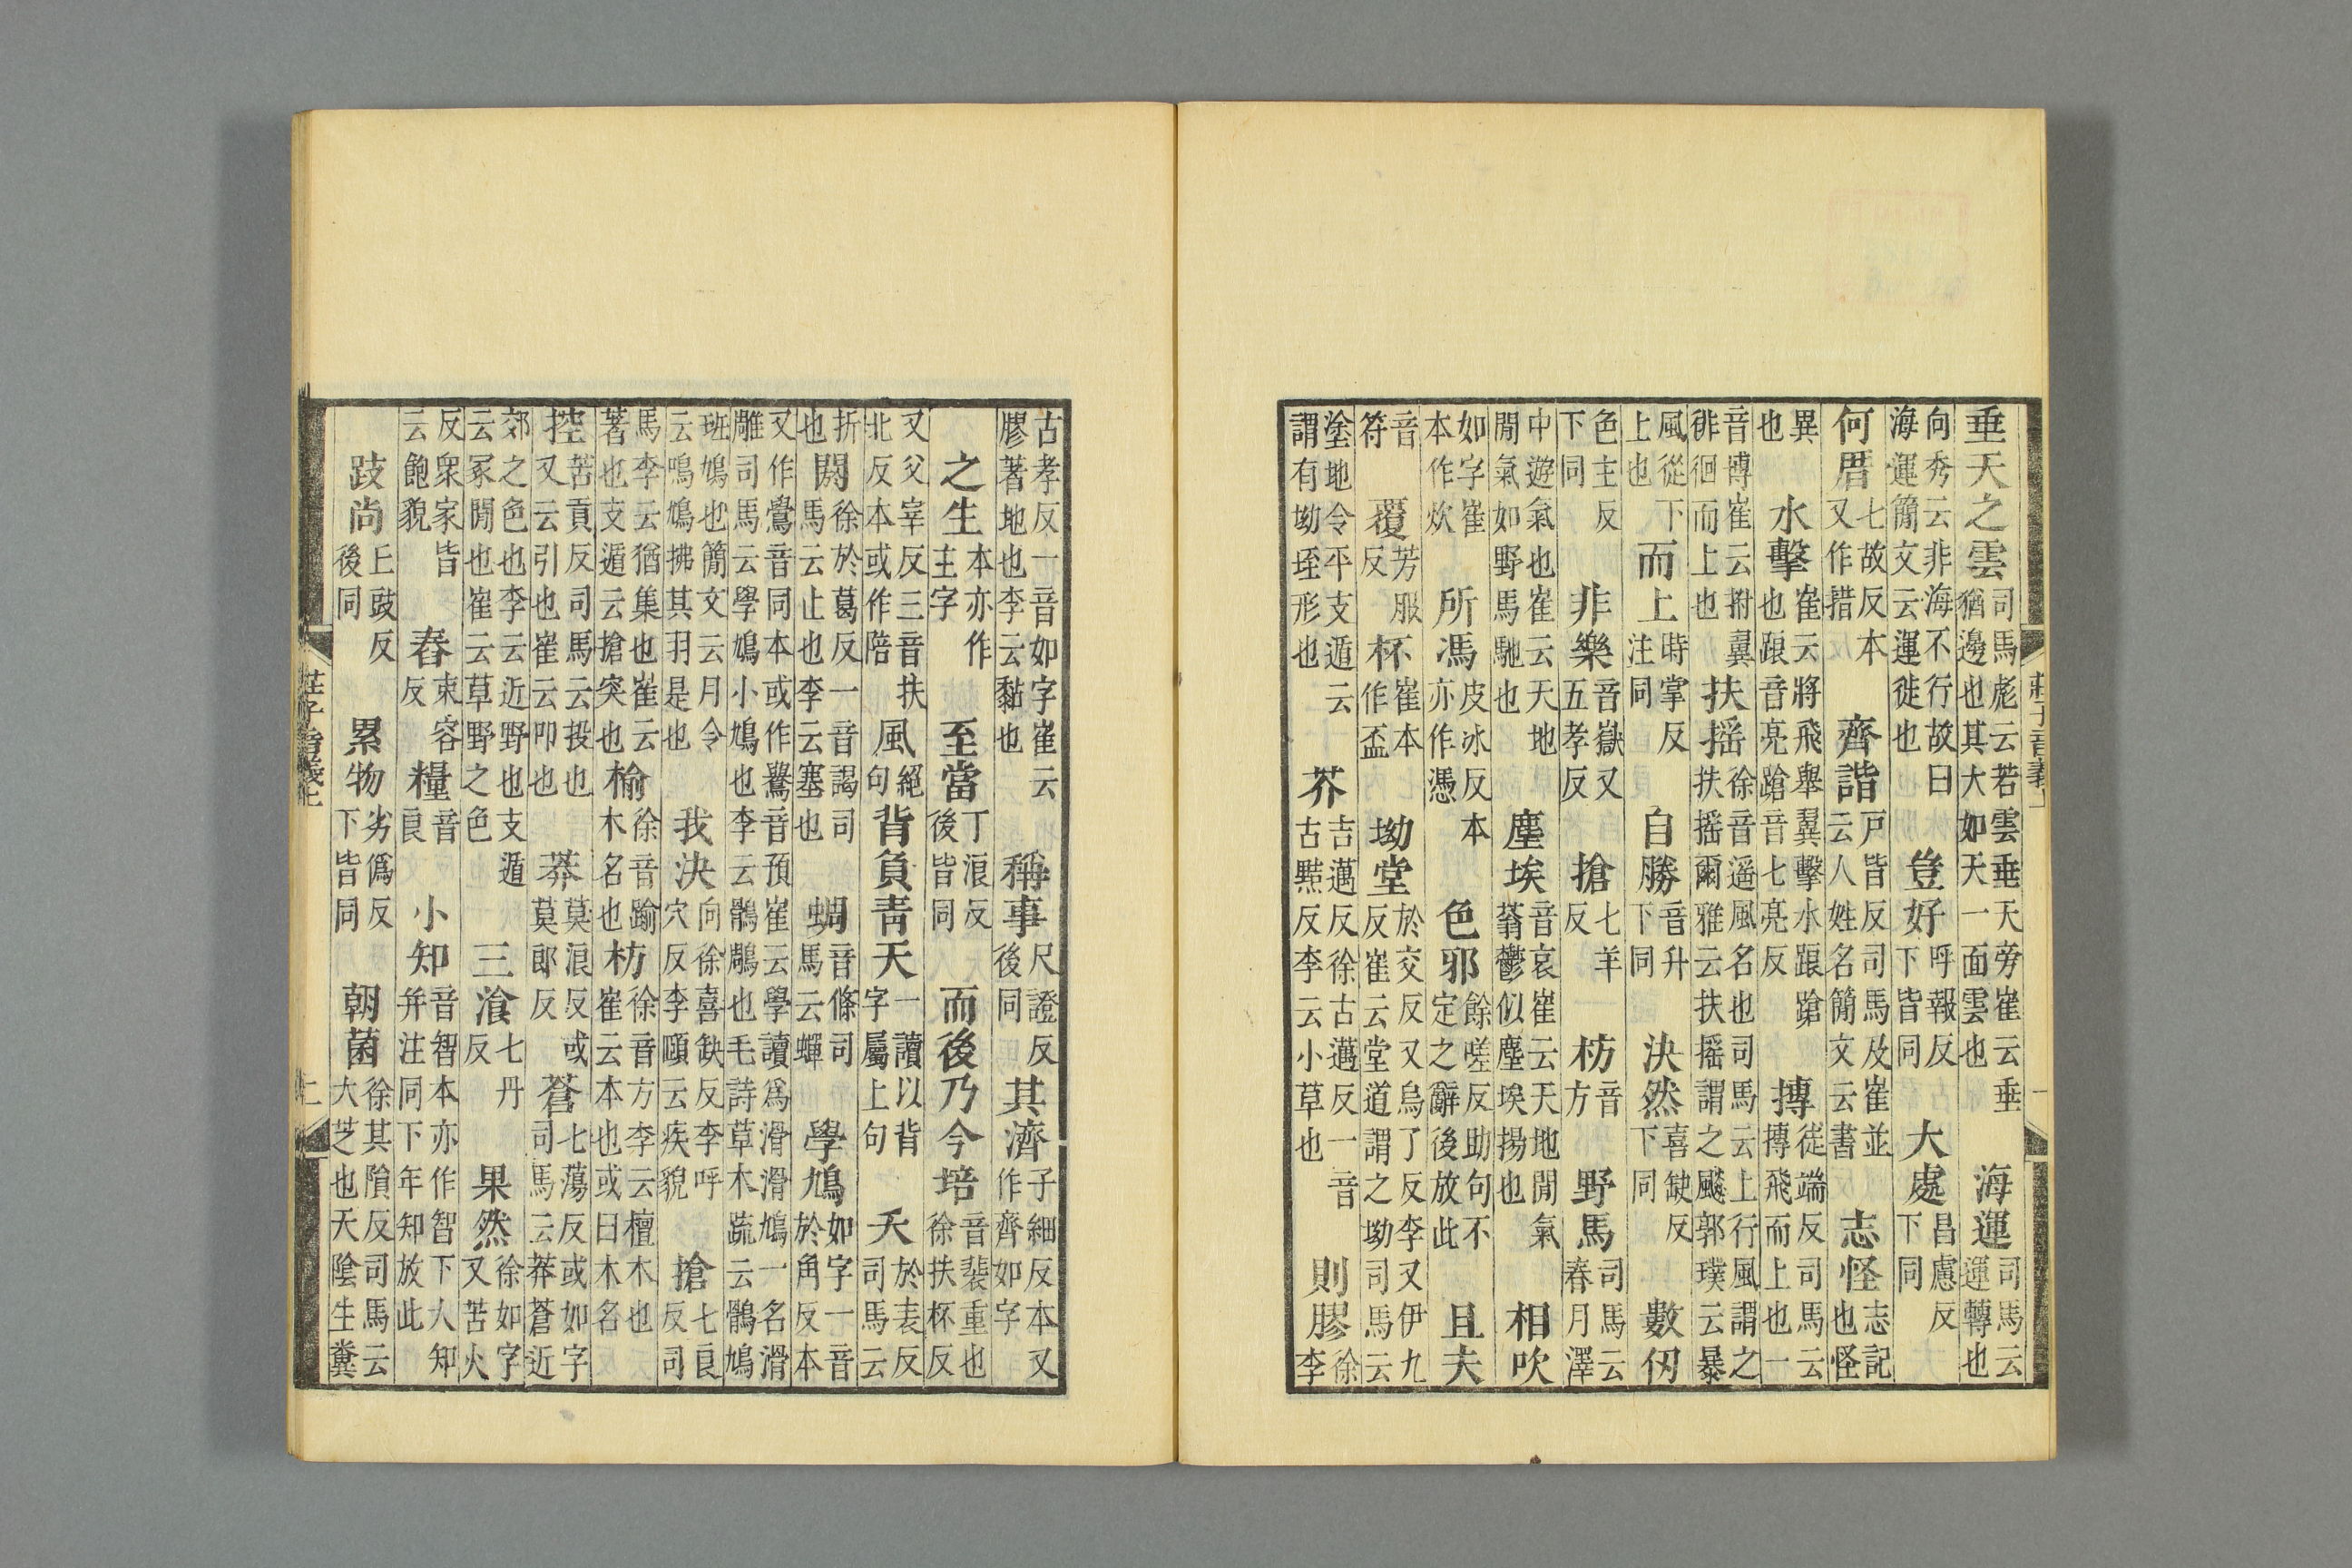 垂天之雲司馬彪云若雲垂天旁崔云垂猶邊也其大如天一面雲也海運司馬云運轉也
向秀云非海不行故曰海運簡文云運徙也豈好呼報反下皆同大處昌慮反下同
何厝七故反本又作措齊諧戸皆反司馬及崔並云人姓名簡文云書志怪志記也怪
異也水擊崔云將飛舉翼擊水踉蹌也踉音亮蹌音七亮反摶徒端反司馬云摶飛而上也一
音博崔云拊翼徘徊而上也扶摇徐音遥風名也司馬云上行風謂之扶摇爾雅云扶摇謂之飈郭璞云暴
風從下上也而上時掌反注同自勝音升下同決然喜缺反下同數仞
色主反下同非樂音嶽又五孝反搶七羊反枋音方野馬司馬云春月澤
中遊氣也崔云天地閒氣如野馬馳也塵埃音哀崔云天地閒氣蓊鬱似塵埃揚也相吹
如字崔本作炊所馮皮冰反本亦作憑色邪餘嗟反助句不定之辭後放此且夫
音符覆芳服反杯崔本作盃坳堂於交反又烏了反李又伊九反崔云堂道謂之坳司馬云
塗地令平支遁云謂有坳垤形也芥吉邁反徐古邁反一音古黠反李云小草也則膠徐李
莊子音義上 一
古孝反一音如字崔云膠著地也李云黏也稱事尺證反後同其濟子細反本又作齊如字
之生本亦作主字至當丁浪反後皆同而後乃今培音裴重也徐扶杯反
又父宰反三音扶北反本或作陪風絕句背負青天一讀以背字屬上句夭於表反司馬云
折也閼徐於葛反一音謁司馬云止也李云塞也蜩音條司馬云蟬學鳩如字一音於角反本
又作鷽音同本或作鸒音預崔云學讀爲滑滑鳩一名滑雕司馬云學鳩小鳩也李云鶻鵰也毛詩草木疏云鶻鳩
班鳩也簡文云月令云鳴鳩拂其羽是也我決向徐喜缺反李呼穴反李頤云疾貌搶七良反司
馬李云猶集也崔云著也支遁云搶突也榆徐音踰木名也枋徐音方李云檀木也崔云本也或曰木名
控苦貢反司馬云投也又云引也崔云叩也莽莫浪反或莫郎反蒼七蕩反或如字司馬云莽蒼近
郊之色也李云近野也支遁云冢閒也崔云草野之色三湌七丹反果然徐如字又苦火
反衆家皆云飽貌舂束容反糧音良小知音智本亦作智下大知并注同下年知放此
跂尚上豉反後同累物劣僞反下皆同朝菌徐其隕反司馬云大芝也天陰生糞
莊子音義上 二